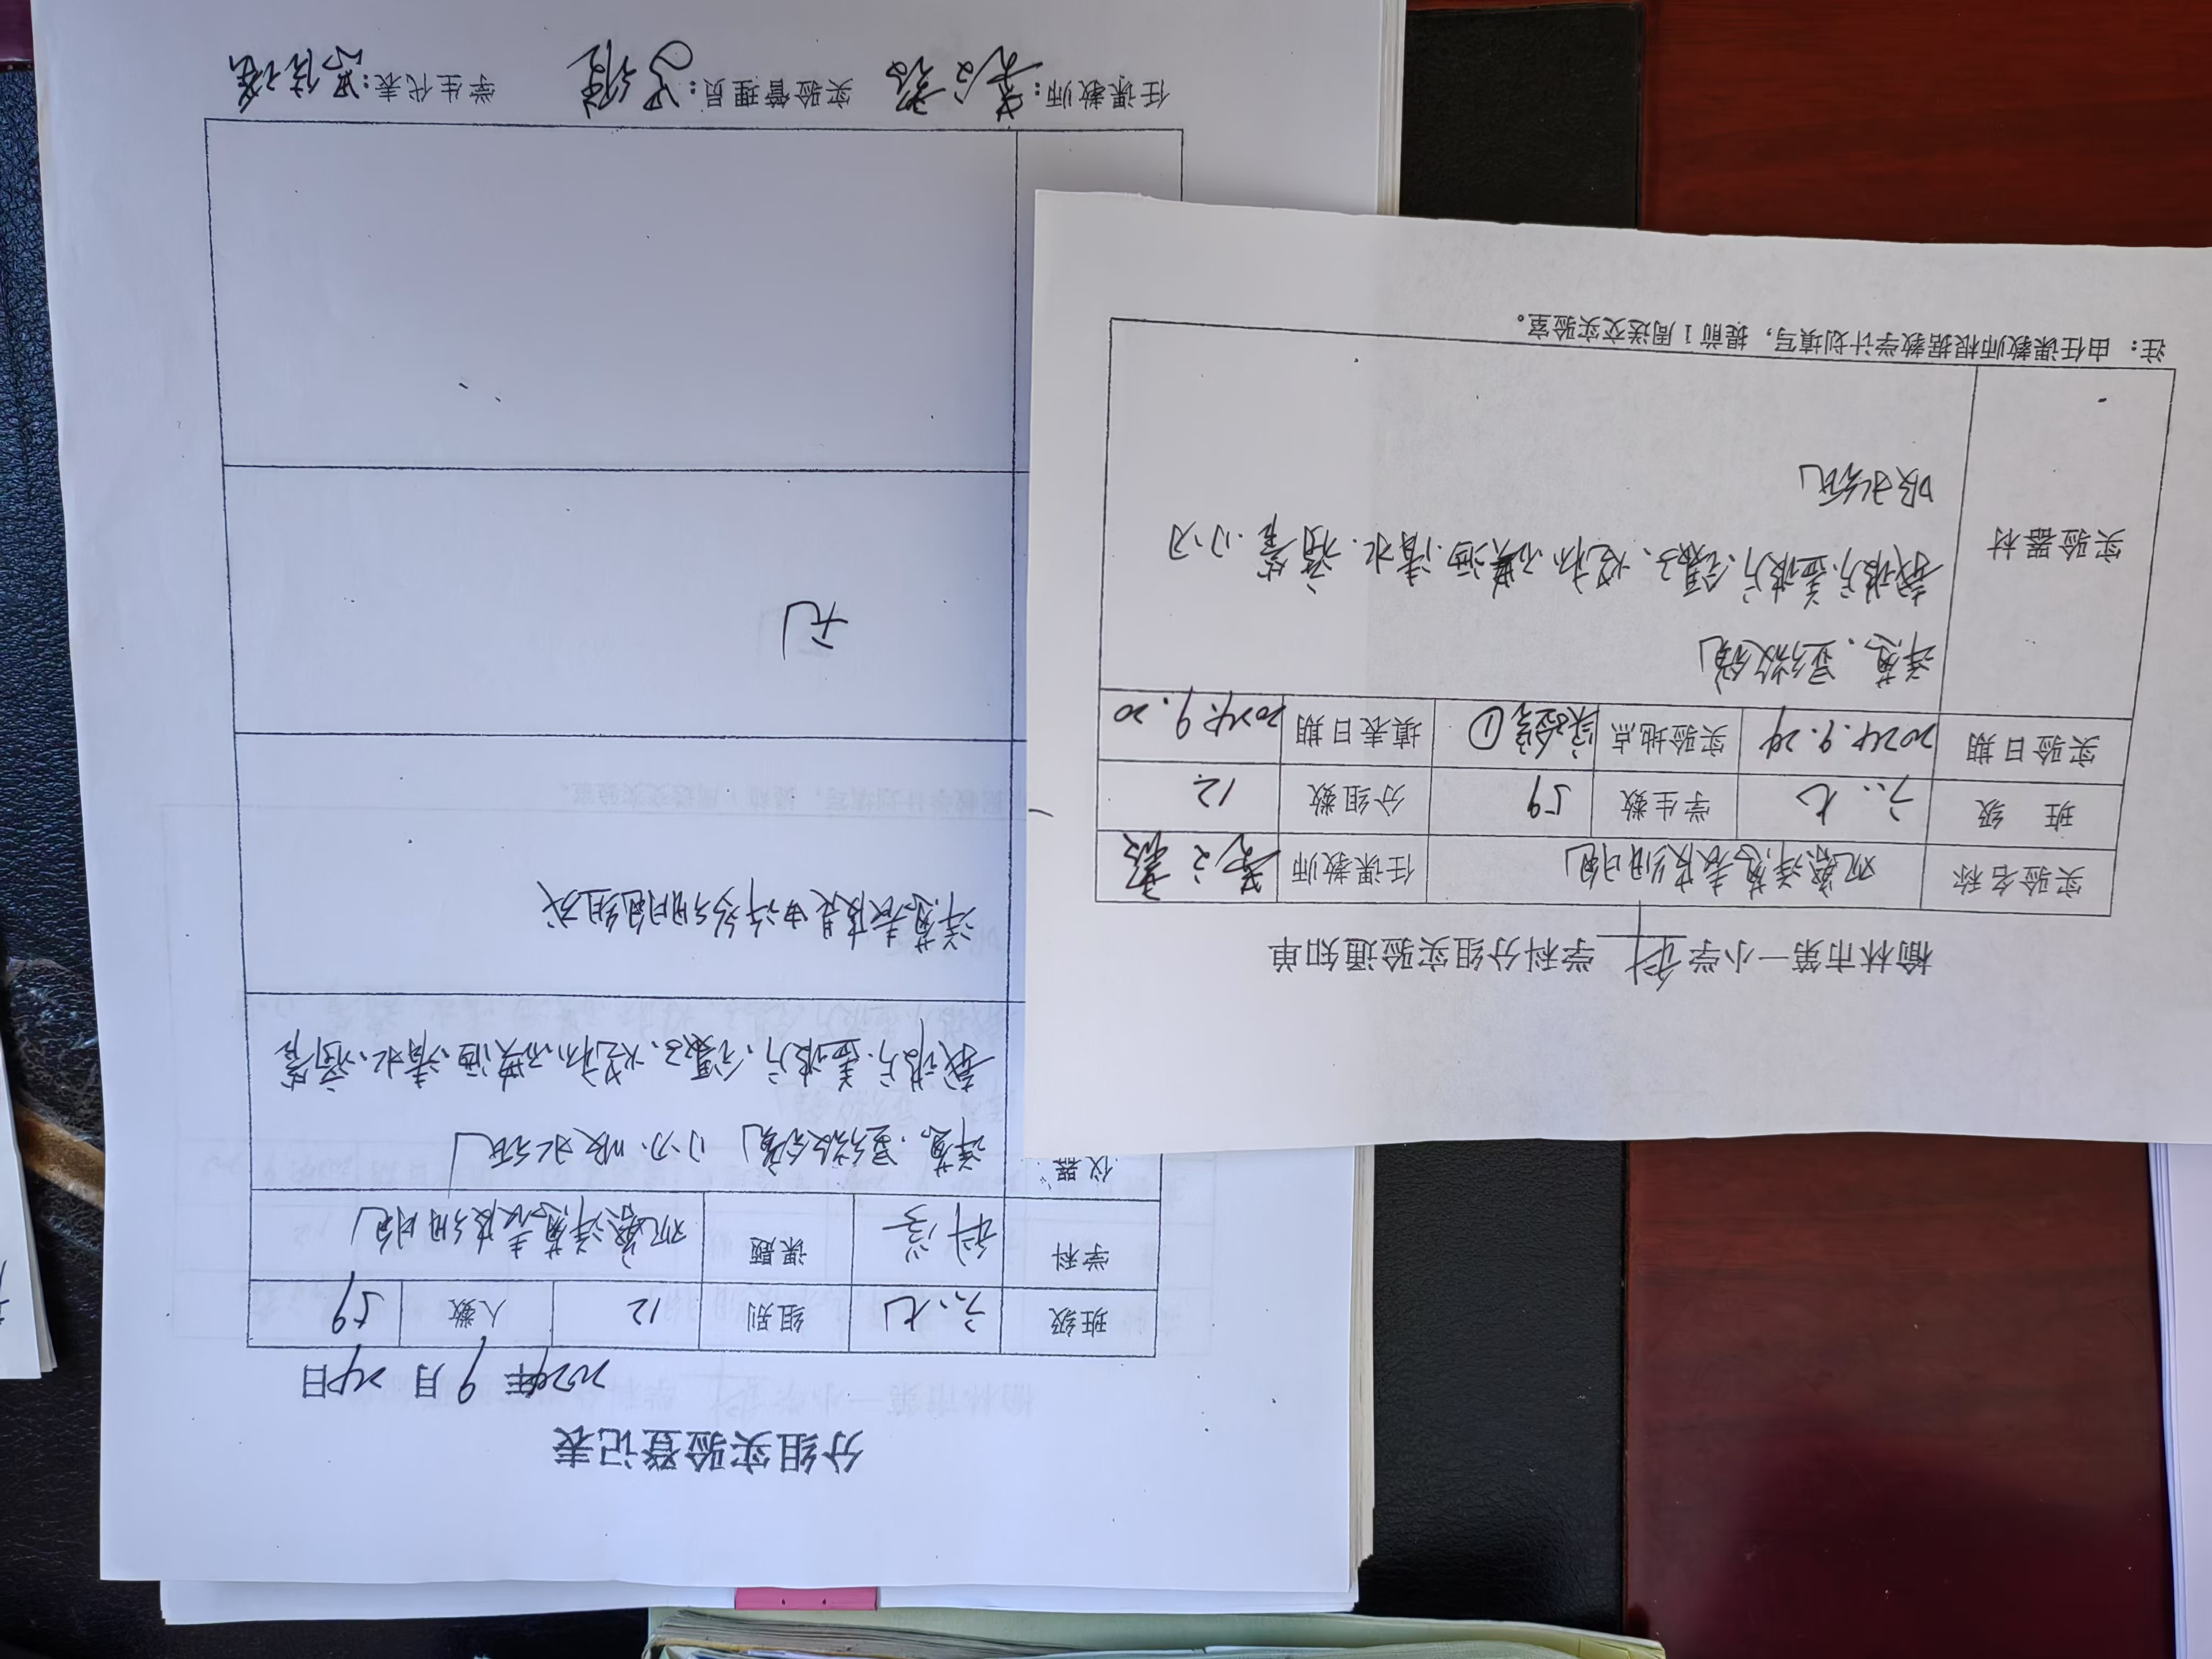 榆林市第一小学 科 学科分组实验通知单
实验名称 观察洋葱表皮细胞 任课教师
班 级 六.七 学生数 59 分组数 12
实验日期 2024.9.24 实验地点 实验室① 填表日期 2024.9.20
实验器材 洋葱、显微镜
载玻片、盖玻片、镊子、烧杯、碘酒、清水、滴管、小刀
吸水纸
注：由任课教师根据教学计划填写，提前1周送交实验室。
分组实验登记表
2024年 9月 24日
班级 六.七 组别 12 人数 59
学科 科学 课题 观察洋葱表皮细胞
仪器 洋葱、显微镜 小刀、吸水纸
载玻片、盖玻片、镊子、烧杯、碘酒、清水、滴管
洋葱表皮是由许多细胞组成
无
任课教师： 实验管理员： 学生代表：